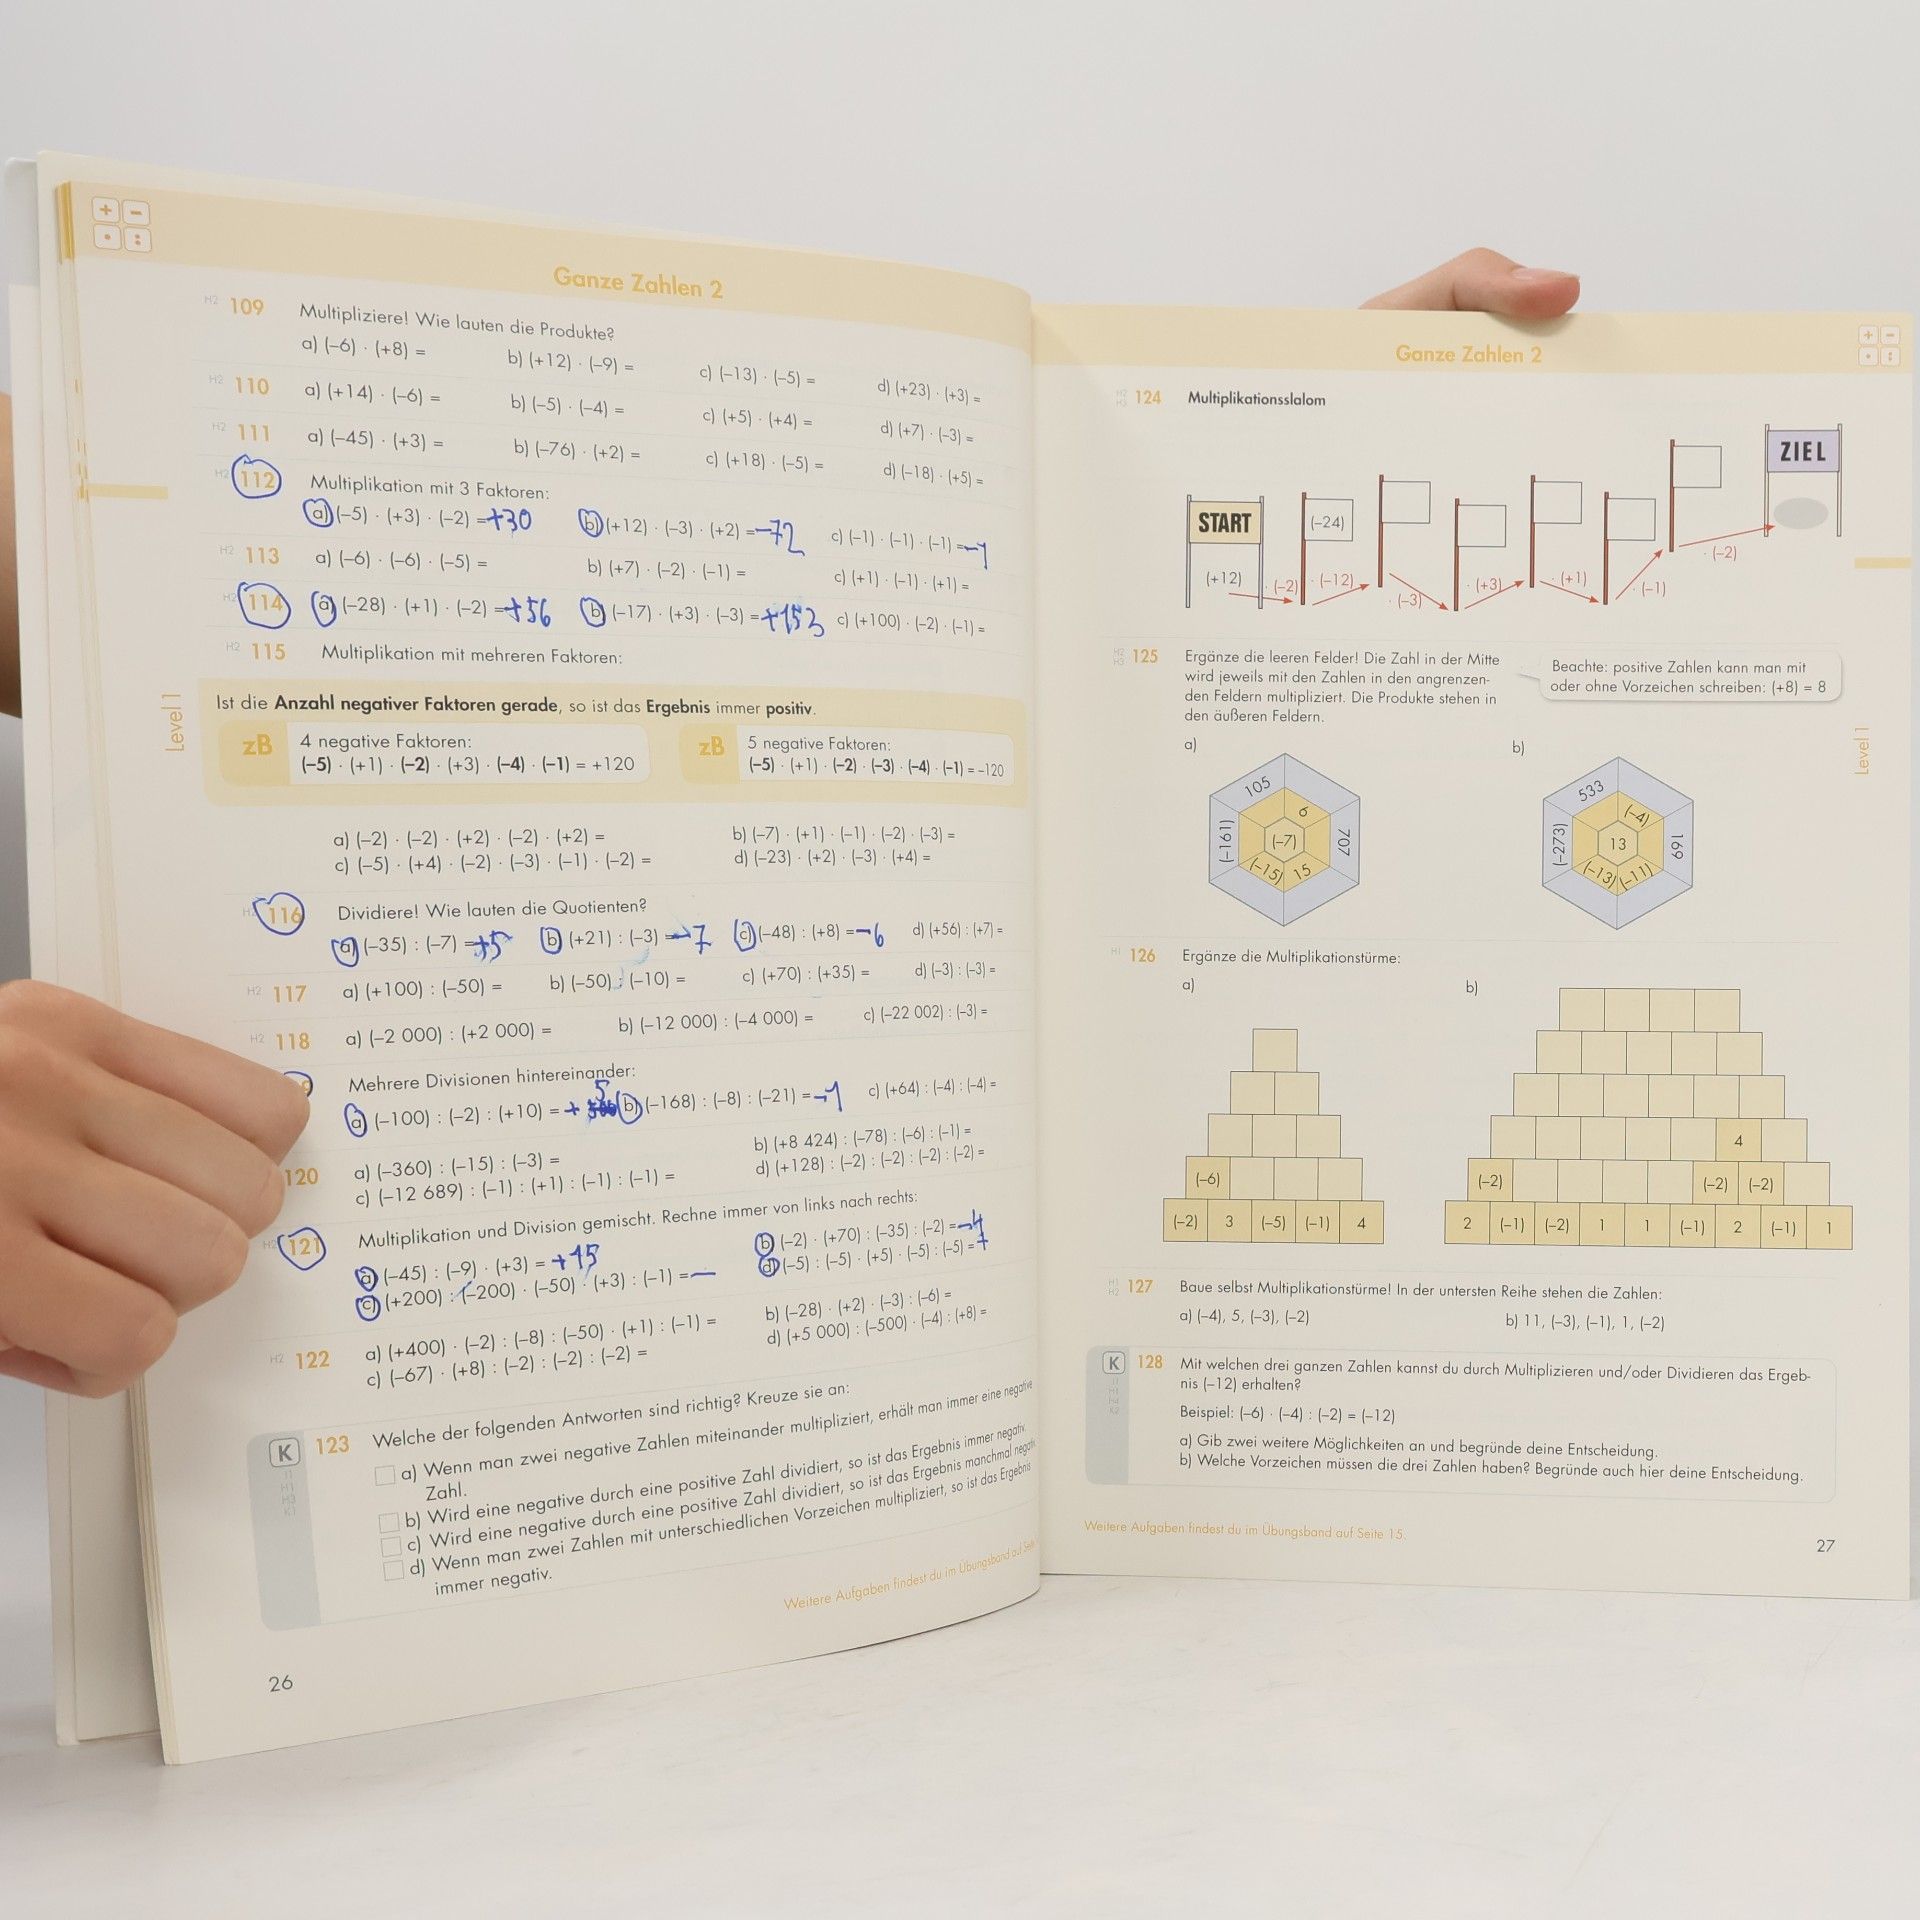 Ganze Zahlen 2
H2 109 Multipliziere! Wie lauten die Produkte?
a) (–6) · (+8) = b) (+12) · (–9) = c) (–13) · (–5) = d) (+23) · (+3) =
H2 110 a) (+14) · (–6) = b) (–5) · (–4) = c) (+5) · (+4) = d) (+7) · (–3) =
H2 111 a) (–45) · (+3) = b) (–76) · (+2) = c) (+18) · (–5) = d) (–18) · (+5) =
H2 112 Multiplikation mit 3 Faktoren:
a) (–5) · (+3) · (–2) = +30 b) (+12) · (–3) · (+2) = –72 c) (–1) · (–1) · (–1) = –1
H2 113 a) (–6) · (–6) · (–5) = b) (+7) · (–2) · (–1) = c) (+1) · (–1) · (+1) =
H2 114 a) (–28) · (+1) · (–2) = +56 b) (–17) · (+3) · (–3) = +153 c) (+100) · (–2) · (–1) =
H2 115 Multiplikation mit mehreren Faktoren:
Level 1
Ist die Anzahl negativer Faktoren gerade, so ist das Ergebnis immer positiv.
zB 4 negative Faktoren:
(–5) · (+1) · (–2) · (+3) · (–4) · (–1) = +120
zB 5 negative Faktoren:
(–5) · (+1) · (–2) · (–3) · (–4) · (–1) = –120
a) (–2) · (–2) · (+2) · (–2) · (+2) = b) (–7) · (+1) · (–1) · (–2) · (–3) =
c) (–5) · (+4) · (–2) · (–3) · (–1) · (–2) = d) (–23) · (+2) · (–3) · (+4) =
116 Dividiere! Wie lauten die Quotienten?
a) (–35) : (–7) = +5 b) (+21) : (–3) = –7 c) (–48) : (+8) = –6 d) (+56) : (+7) =
H2 117 a) (+100) : (–50) = b) (–50) : (–10) = c) (+70) : (+35) = d) (–3) : (–3) =
H2 118 a) (–2 000) : (+2 000) = b) (–12 000) : (–4 000) = c) (–22 002) : (–3) =
Mehrere Divisionen hintereinander:
a) (–100) : (–2) : (+10) = + 5 b) (–168) : (–8) : (–21) = –1 c) (+64) : (–4) : (–4) =
120 a) (–360) : (–15) : (–3) = b) (+8 424) : (–78) : (–6) : (–1) =
c) (–12 689) : (–1) : (+1) : (–1) : (–1) = d) (+128) : (–2) : (–2) : (–2) : (–2) =
H2 121 Multiplikation und Division gemischt. Rechne immer von links nach rechts:
a) (–45) : (–9) · (+3) = +15 b) (–2) · (+70) : (–35) : (–2) = –4
c) (+200) : (–200) · (–50) · (+3) : (–1) = – d) (–5) : (–5) · (+5) · (–5) : (–5) = +
H2 122 a) (+400) · (–2) : (–8) : (–50) · (+1) : (–1) = b) (–28) · (+2) · (–3) : (–6) =
c) (–67) · (+8) : (–2) : (–2) : (–2) = d) (+5 000) : (–500) · (–4) : (+8) =
K 123 Welche der folgenden Antworten sind richtig? Kreuze sie an:
a) Wenn man zwei negative Zahlen miteinander multipliziert, erhält man immer eine negative
Zahl.
b) Wird eine negative durch eine positive Zahl dividiert, so ist das Ergebnis immer negativ.
c) Wird eine negative durch eine positive Zahl dividiert, so ist das Ergebnis manchmal
d) Wenn man zwei Zahlen mit unterschiedlichen Vorzeichen multipliziert, so ist das Ergebnis
immer negativ.
Weitere Aufgaben findest du im Übungsband auf Seite
26
Ganze Zahlen 2
H2 H3 124 Multiplikationsslalom
START
(+12)
· (–2)
(–24)
· (–12)
· (–3)
· (+3)
· (+1)
· (–1)
· (–2)
ZIEL
H2 H3 125 Ergänze die leeren Felder! Die Zahl in der Mitte
wird jeweils mit den Zahlen in den angrenzen-
den Feldern multipliziert. Die Produkte stehen in
den äußeren Feldern.
Beachte: positive Zahlen kann man mit
oder ohne Vorzeichen schreiben: (+8) = 8
a) b)
105 6 707 15 (–15) (–161) (–7)
533 (–4) 169 (–11) (–13) (–273) 13
Level 1
H1 126 Ergänze die Multiplikationstürme:
a) b)
4
(–6)
(–2) (–2) (–2)
(–2) 3 (–5) (–1) 4
2 (–1) (–2) 1 1 (–1) 2 (–1) 1
H1 H2 127 Baue selbst Multiplikationstürme! In der untersten Reihe stehen die Zahlen:
a) (–4), 5, (–3), (–2) b) 11, (–3), (–1), 1, (–2)
K 128 Mit welchen drei ganzen Zahlen kannst du durch Multiplizieren und/oder Dividieren das Ergeb-
nis (–12) erhalten?
Beispiel: (–6) · (–4) : (–2) = (–12)
a) Gib zwei weitere Möglichkeiten an und begründe deine Entscheidung.
b) Welche Vorzeichen müssen die drei Zahlen haben? Begründe auch hier deine Entscheidung.
Weitere Aufgaben findest du im Übungsband auf Seite 15.
27